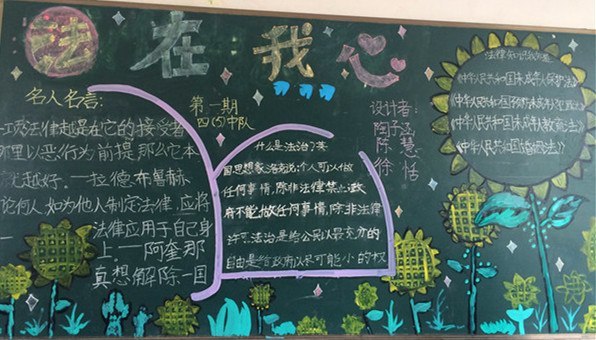 法在我心
名人名言:
第一期
四(5)中队
设计者:
陶子涵
陈慧
徐怡
法律越是在它的接受者
那里以恶行为前提,那么它本
就越好.—拉德布鲁赫
论何人,如为他人制定法律,应将
法律应用于自己身
上——阿奎那
真想解除一国
什么是法治?英
国思想家洛克说:个人可以做
任何事情,除非法律禁止;政
府不能做任何事情,除非法律
许可.法治是给公民以最充分的
自由是给政府以尽可能小的权
法律知识我知道
《中华人民共和国未成年人保护法》
《中华人民共和国预防未成年人犯罪法》
《中华人民共和国义务教育法》
《中华人民共和国婚姻法》